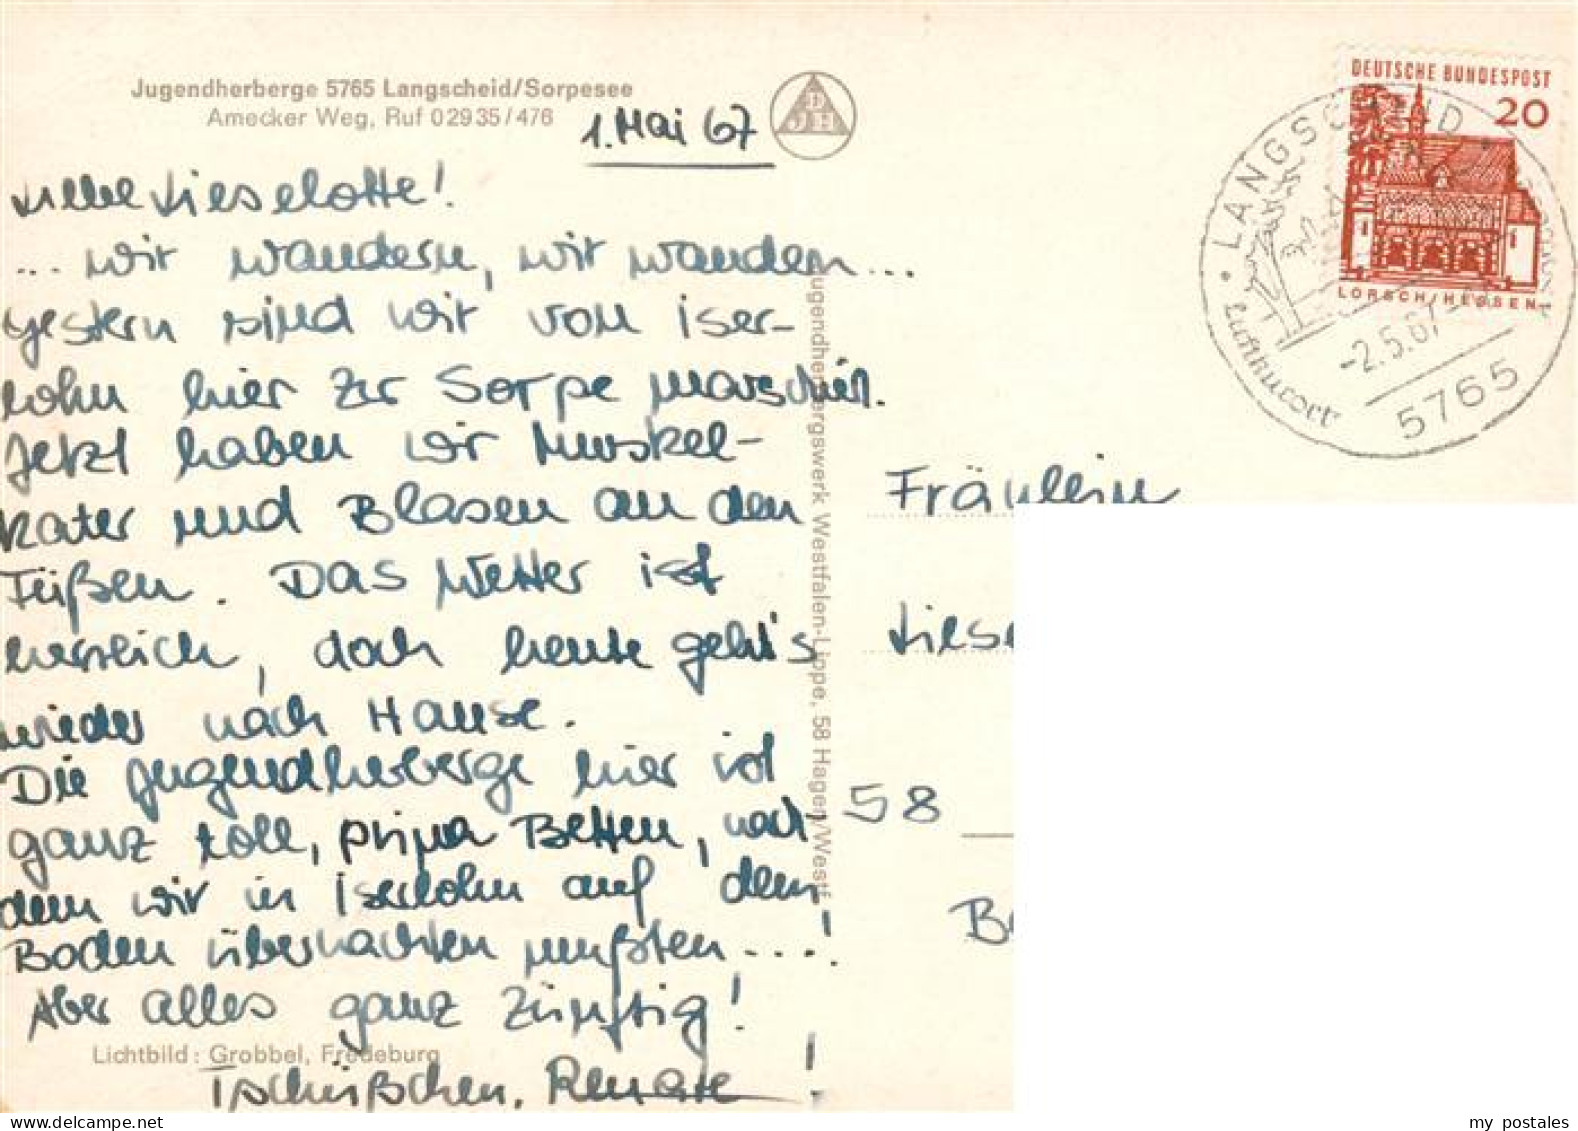 Jugendherberge 5765 Langscheid/Sorpesee
Amecker Weg, Ruf 02935/476
1. Mai 67
Liebe Lieselotte!
... wir wandern, wir wandern ...
gestern sind wir von Iser-
lohn hier zur Sorpe marschiert.
Jetzt haben wir Muskel-
kater und Blasen an den
Füßen. Das Wetter ist
herrlich, doch heute geht's
wieder nach Hause.
Die Jugendherberge hier ist
ganz toll, prima Betten, nach
dem wir in Iserlohn auf dem
Boden übernachten mußten ...!
Aber alles ganz zünftig!
Tschüßchen, Renate!
Lichtbild: Grobbel, Fredeburg
Jugendherbergswerk Westfalen-Lippe, 58 Hagen/Westf.
DJH
DEUTSCHE BUNDESPOST
20
LORSCH/HESSEN
LANGSCHEID
Luftkurort
-2.5.67
5765
Fräulein
Liese
58
B
my postales